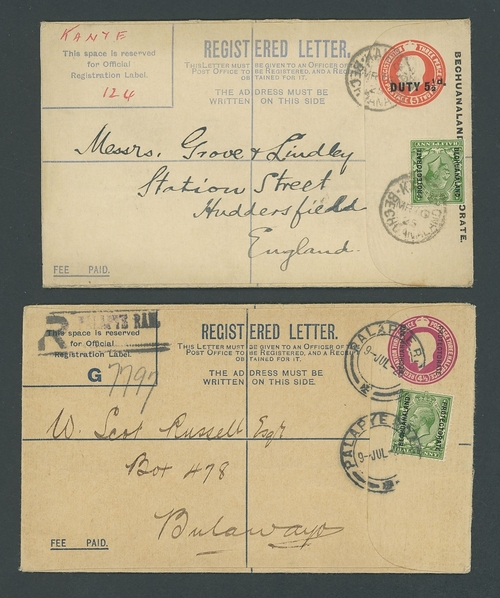 KANYE
This space is reserved
for Official
Registration Label.
124
REGISTERED LETTER.
THIS LETTER MUST BE GIVEN TO AN OFFICER OF
POST OFFICE TO BE REGISTERED, AND A
OR TAINED FOR IT.
THE ADDRESS MUST BE
WRITTEN ON THIS SIDE
DUTY 5½d.
BECHUANALAND
ORATE.
Messrs. Grove & Lindley
Station Street
Huddersfield
England.
FEE PAID.
R
This space is reserved
for Official
Registration Label.
G
7797
REGISTERED LETTER.
THIS LETTER MUST BE GIVEN TO AN OFFICER OF
POST OFFICE TO BE REGISTERED, AND A
OR TAINED FOR IT.
THE ADDRESS MUST BE
WRITTEN ON THIS SIDE.
PALAPYE
9-JUL
PROTECTORATE
PALAPYE
9-JUL
W. Scot Russell Esqr
Box 478
Bulawayo
FEE PAID.